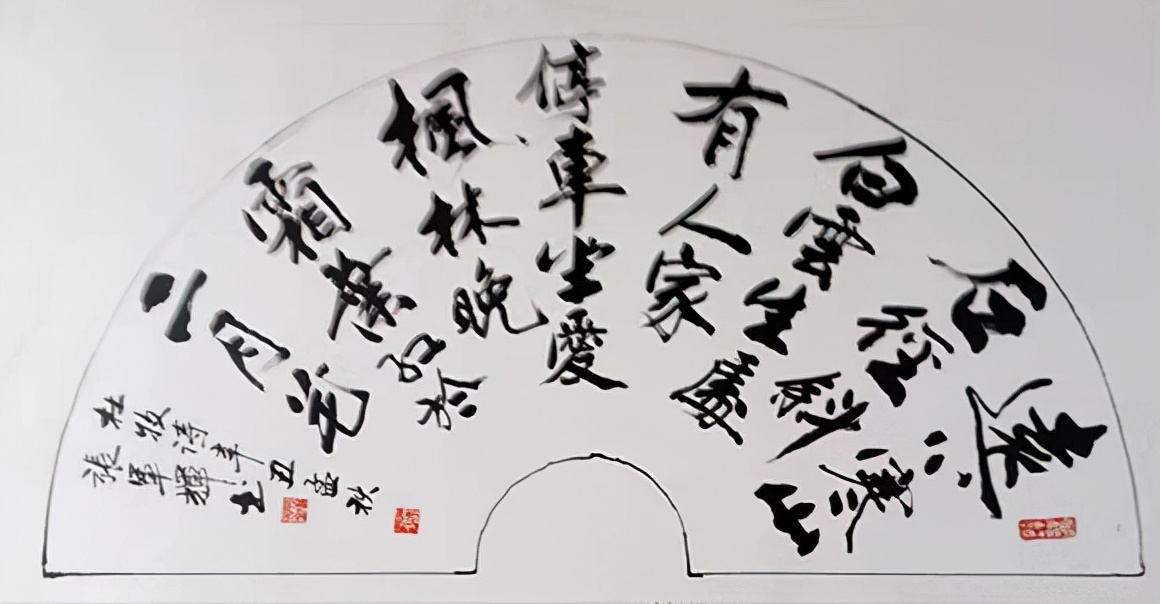 遠上寒山
石徑斜
白雲生處
有人家
停車坐愛
楓林晚
霜葉紅於
二月花
杜牧诗辛丑孟秋
張軍輝书